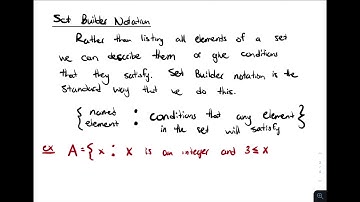 Set Builder Notation
Rather than listing all elements of a set
we can describe them or give conditions
that they satisfy. Set Builder notation is the
standard way that we do this.
{ named element : conditions that any element in the set will satisfy
ex A = { x : x is an integer and 3 ≤ x